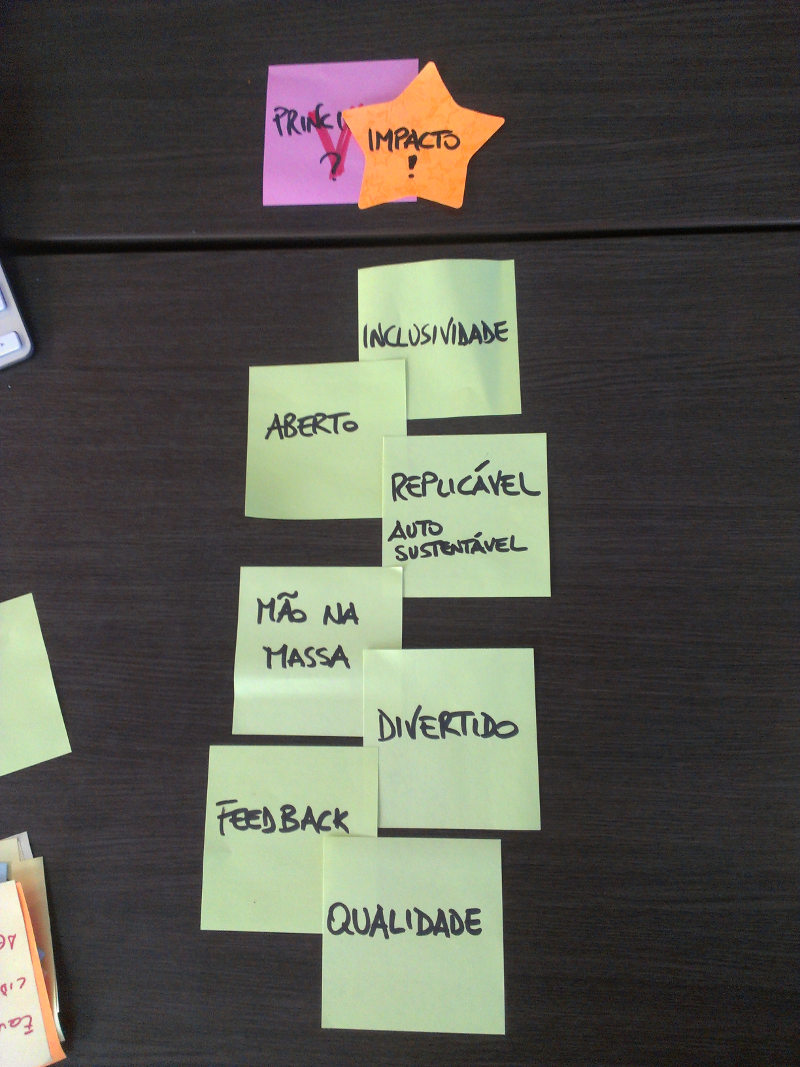 IMPACTO
!
?
INCLUSIVIDADE
ABERTO
REPLICÁVEL
AUTO
SUSTENTÁVEL
MÃO NA
MASSA
DIVERTIDO
FEEDBACK
QUALIDADE